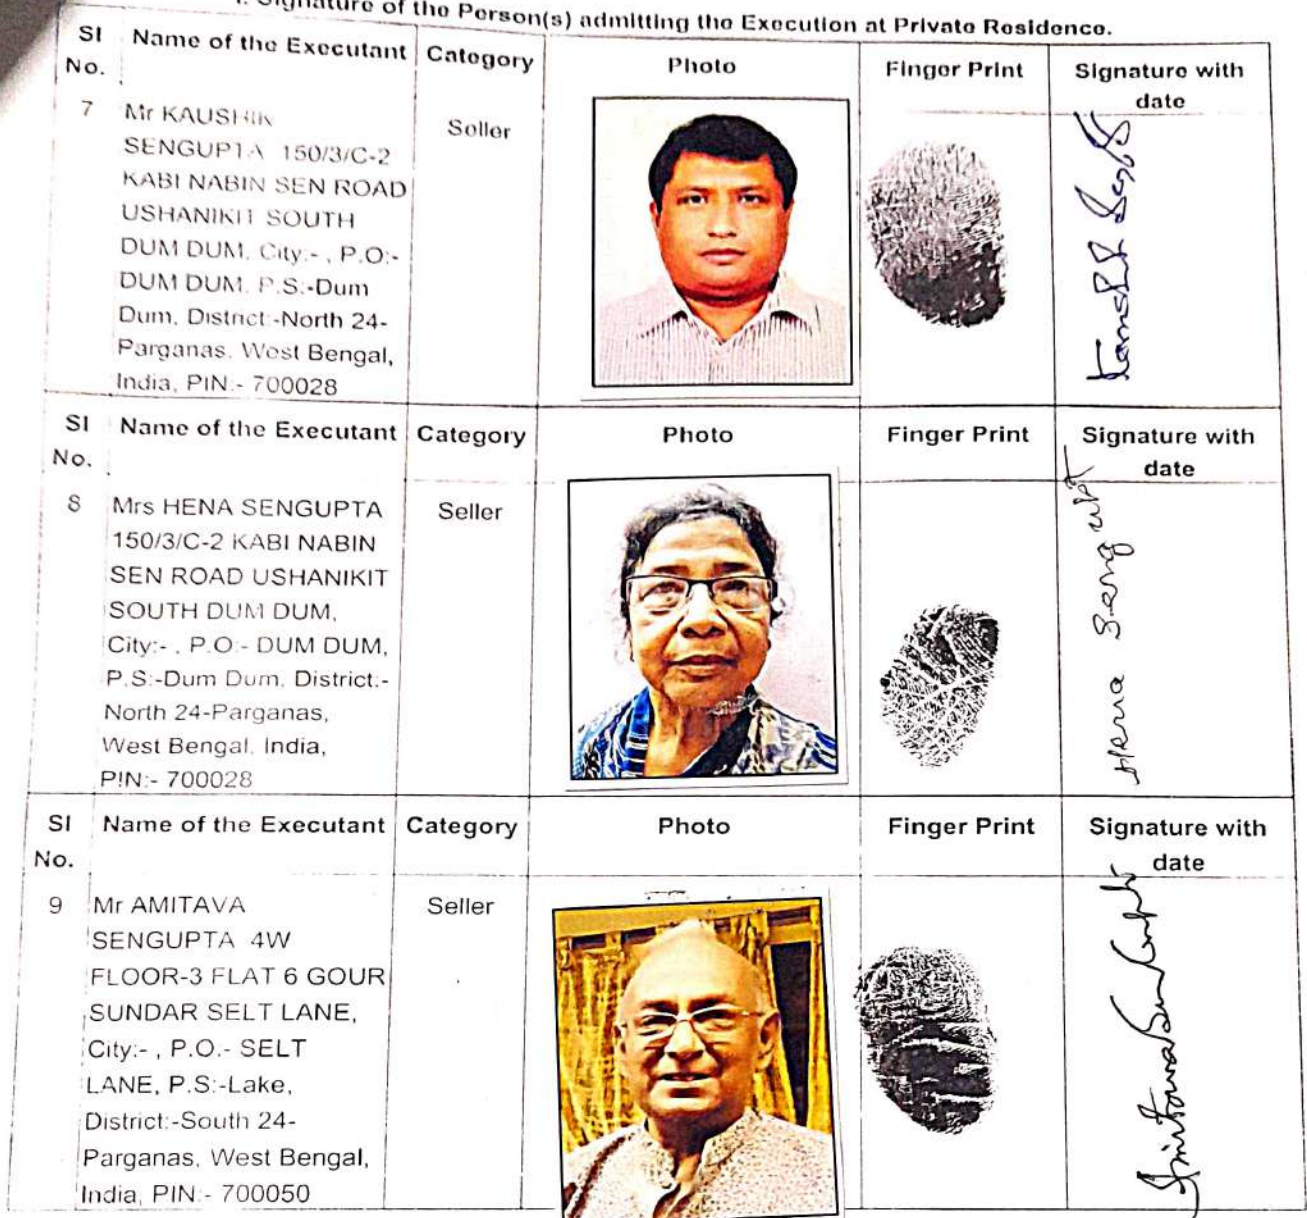 Signature of the Person(s) admitting the Execution at Private Residence.
SI No. Name of the Executant Category Photo Finger Print Signature with date
7 Mr KAUSHIK Seller
SENGUPTA 150/3/C-2
KABI NABIN SEN ROAD
USHANIKIT SOUTH
DUM DUM, City:- , P.O:-
DUM DUM, P.S:-Dum
Dum, District:-North 24-
Parganas, West Bengal,
India, PIN:- 700028
SI No. Name of the Executant Category Photo Finger Print Signature with date
8 Mrs HENA SENGUPTA Seller
150/3/C-2 KABI NABIN
SEN ROAD USHANIKIT
SOUTH DUM DUM,
City:- , P.O:- DUM DUM,
P.S:-Dum Dum, District:-
North 24-Parganas,
West Bengal, India,
PIN:- 700028
Hena Sengupta
SI No. Name of the Executant Category Photo Finger Print Signature with date
9 Mr AMITAVA Seller
SENGUPTA 4W
FLOOR-3 FLAT 6 GOUR
SUNDAR SELT LANE,
City:- , P.O:- SELT
LANE, P.S:-Lake,
District:-South 24-
Parganas, West Bengal,
India, PIN:- 700050
Amitava Sengupta